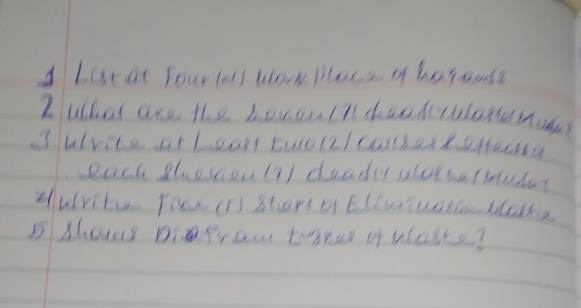 1 List at Four (4) Work Place of hazards
2 What are the Seven (7) deadly Waste (Muda)
3 Write at Least two (2) causes & effects of
each Seven (7) deadly waste (Muda)
4 Write Steps of Elimination Waste
5 Shows Diagram types of Waste?